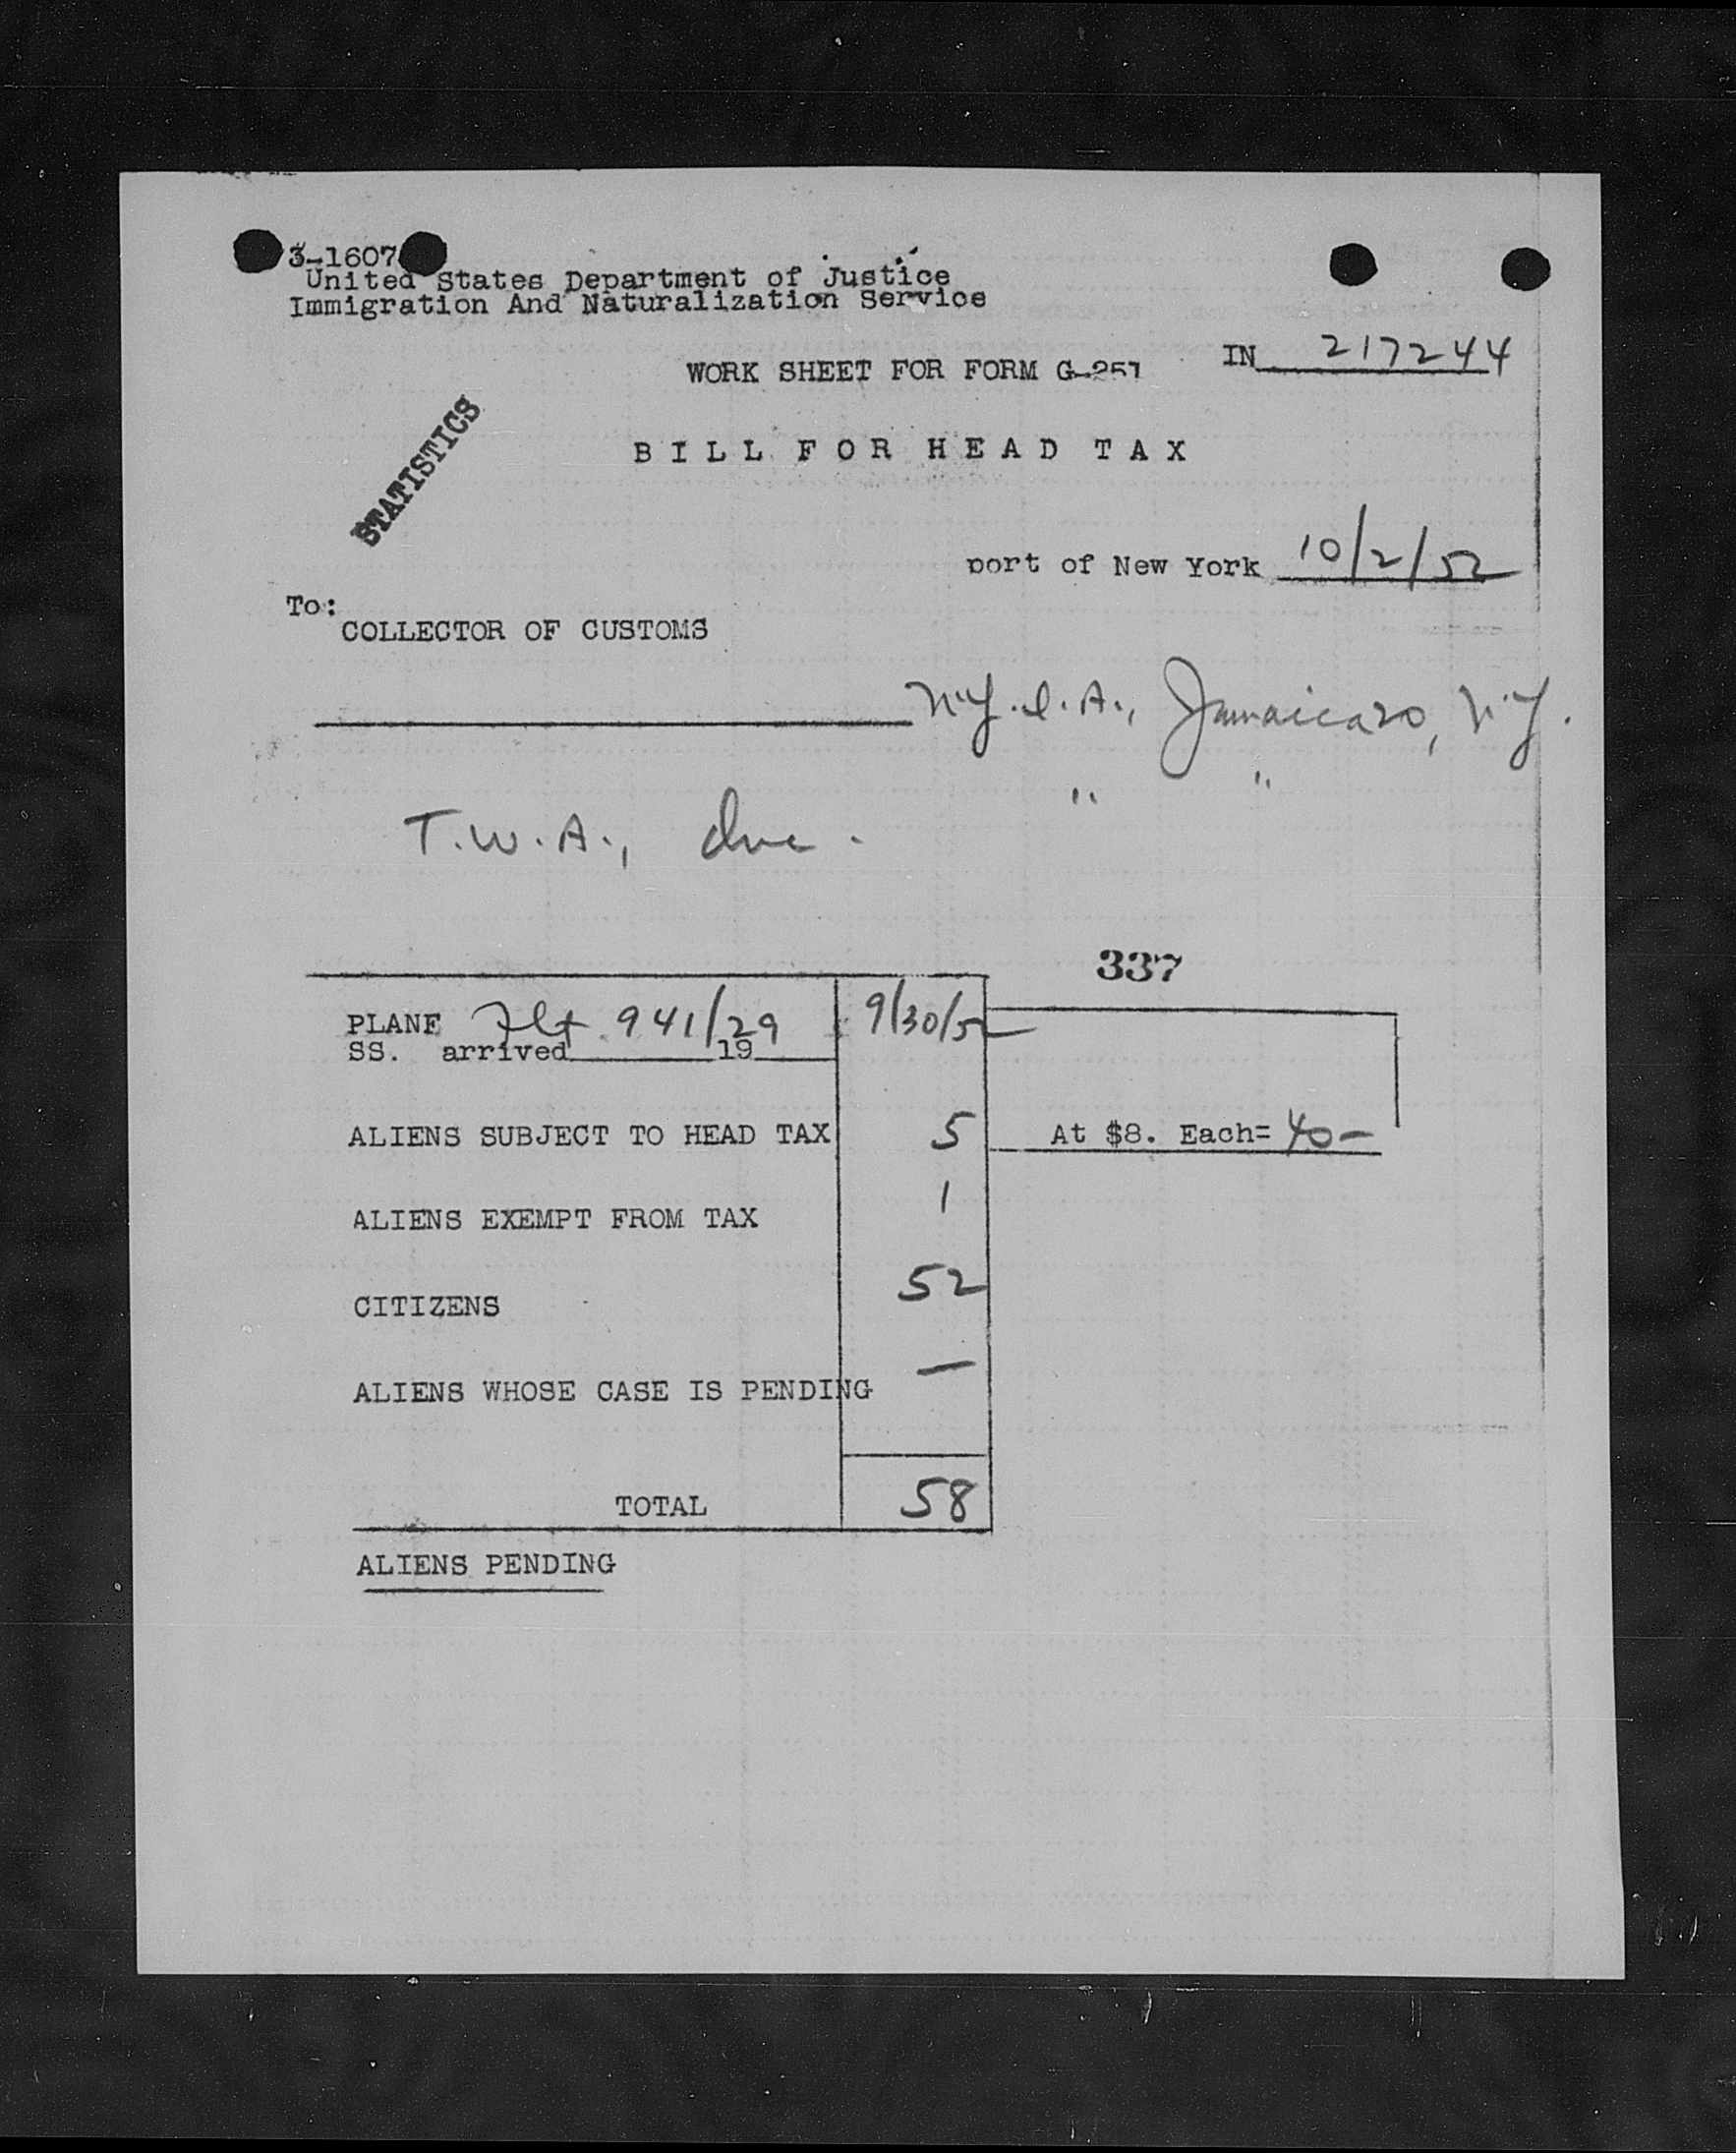 3-1607
United States Department of Justice
Immigration And Naturalization Service
IN 217244
WORK SHEET FOR FORM G-251
STATISTICS
BILL FOR HEAD TAX
port of New York 10/2/52
To:
COLLECTOR OF CUSTOMS
N.Y.I.A., Jamaica 30, N.Y.
" "
T.W.A., Inc.
337
PLANE Flt 941/29 9/30/52
SS. arrived 19
ALIENS SUBJECT TO HEAD TAX 5 At $8. Each= 40-
ALIENS EXEMPT FROM TAX 1
CITIZENS 52
ALIENS WHOSE CASE IS PENDING —
TOTAL 58
ALIENS PENDING